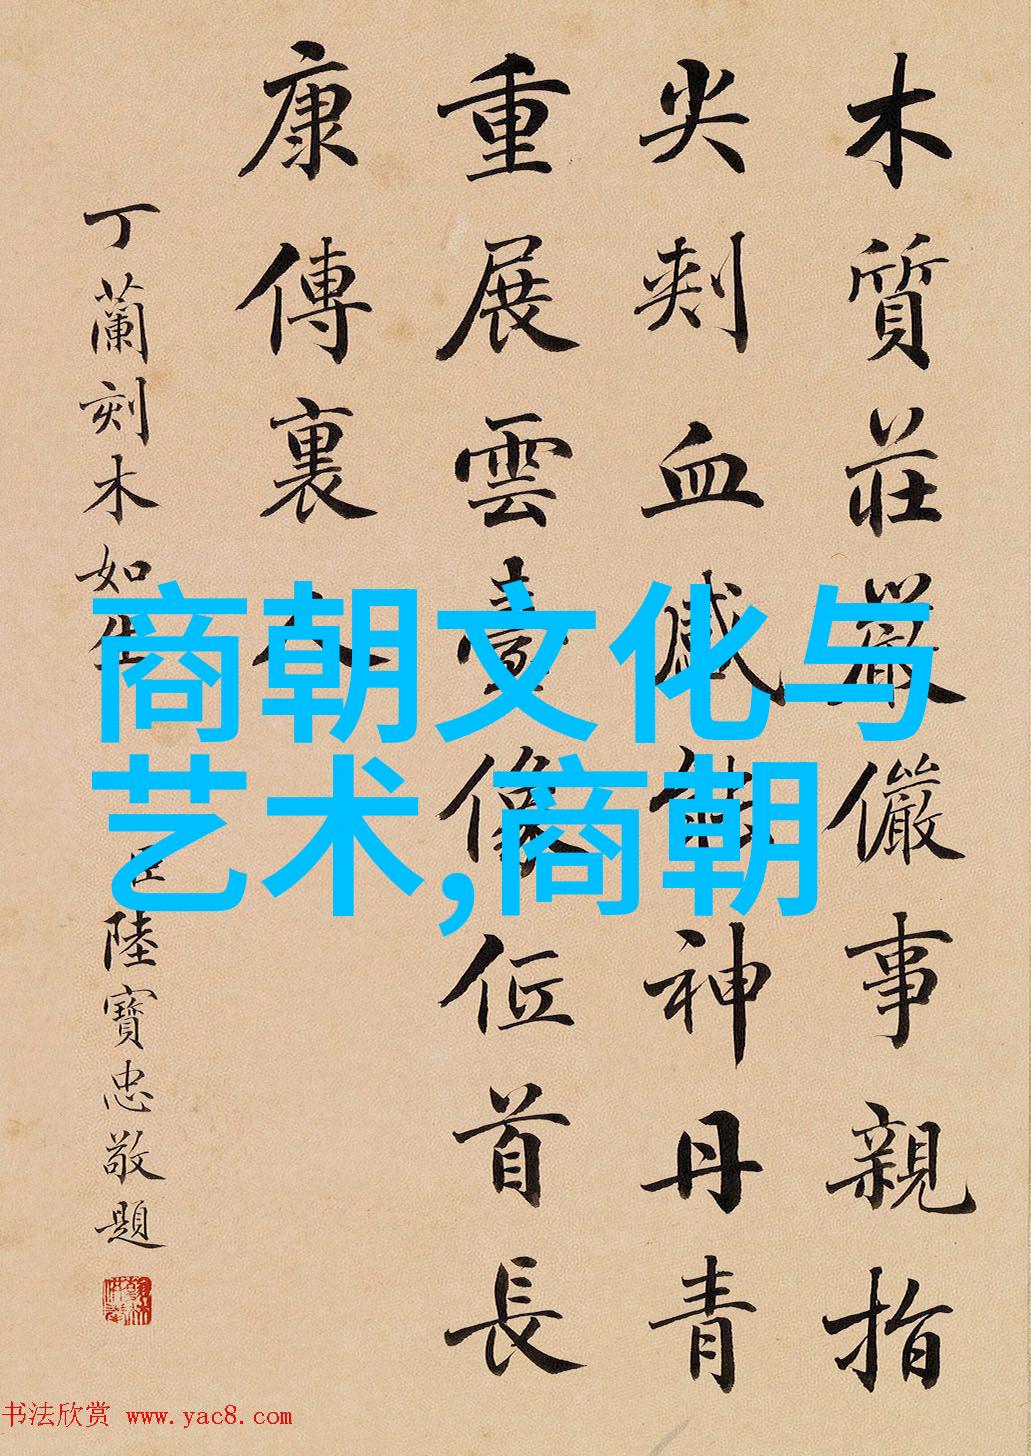 木質莊嚴儼事親指
尖刾血感神丹青
重展雲臺像位首長
康傳裏人
丁蘭刻木如生
臣陸寶忠敬題
商朝文化与
艺术,商朝
书法欣赏 www.yac8.com